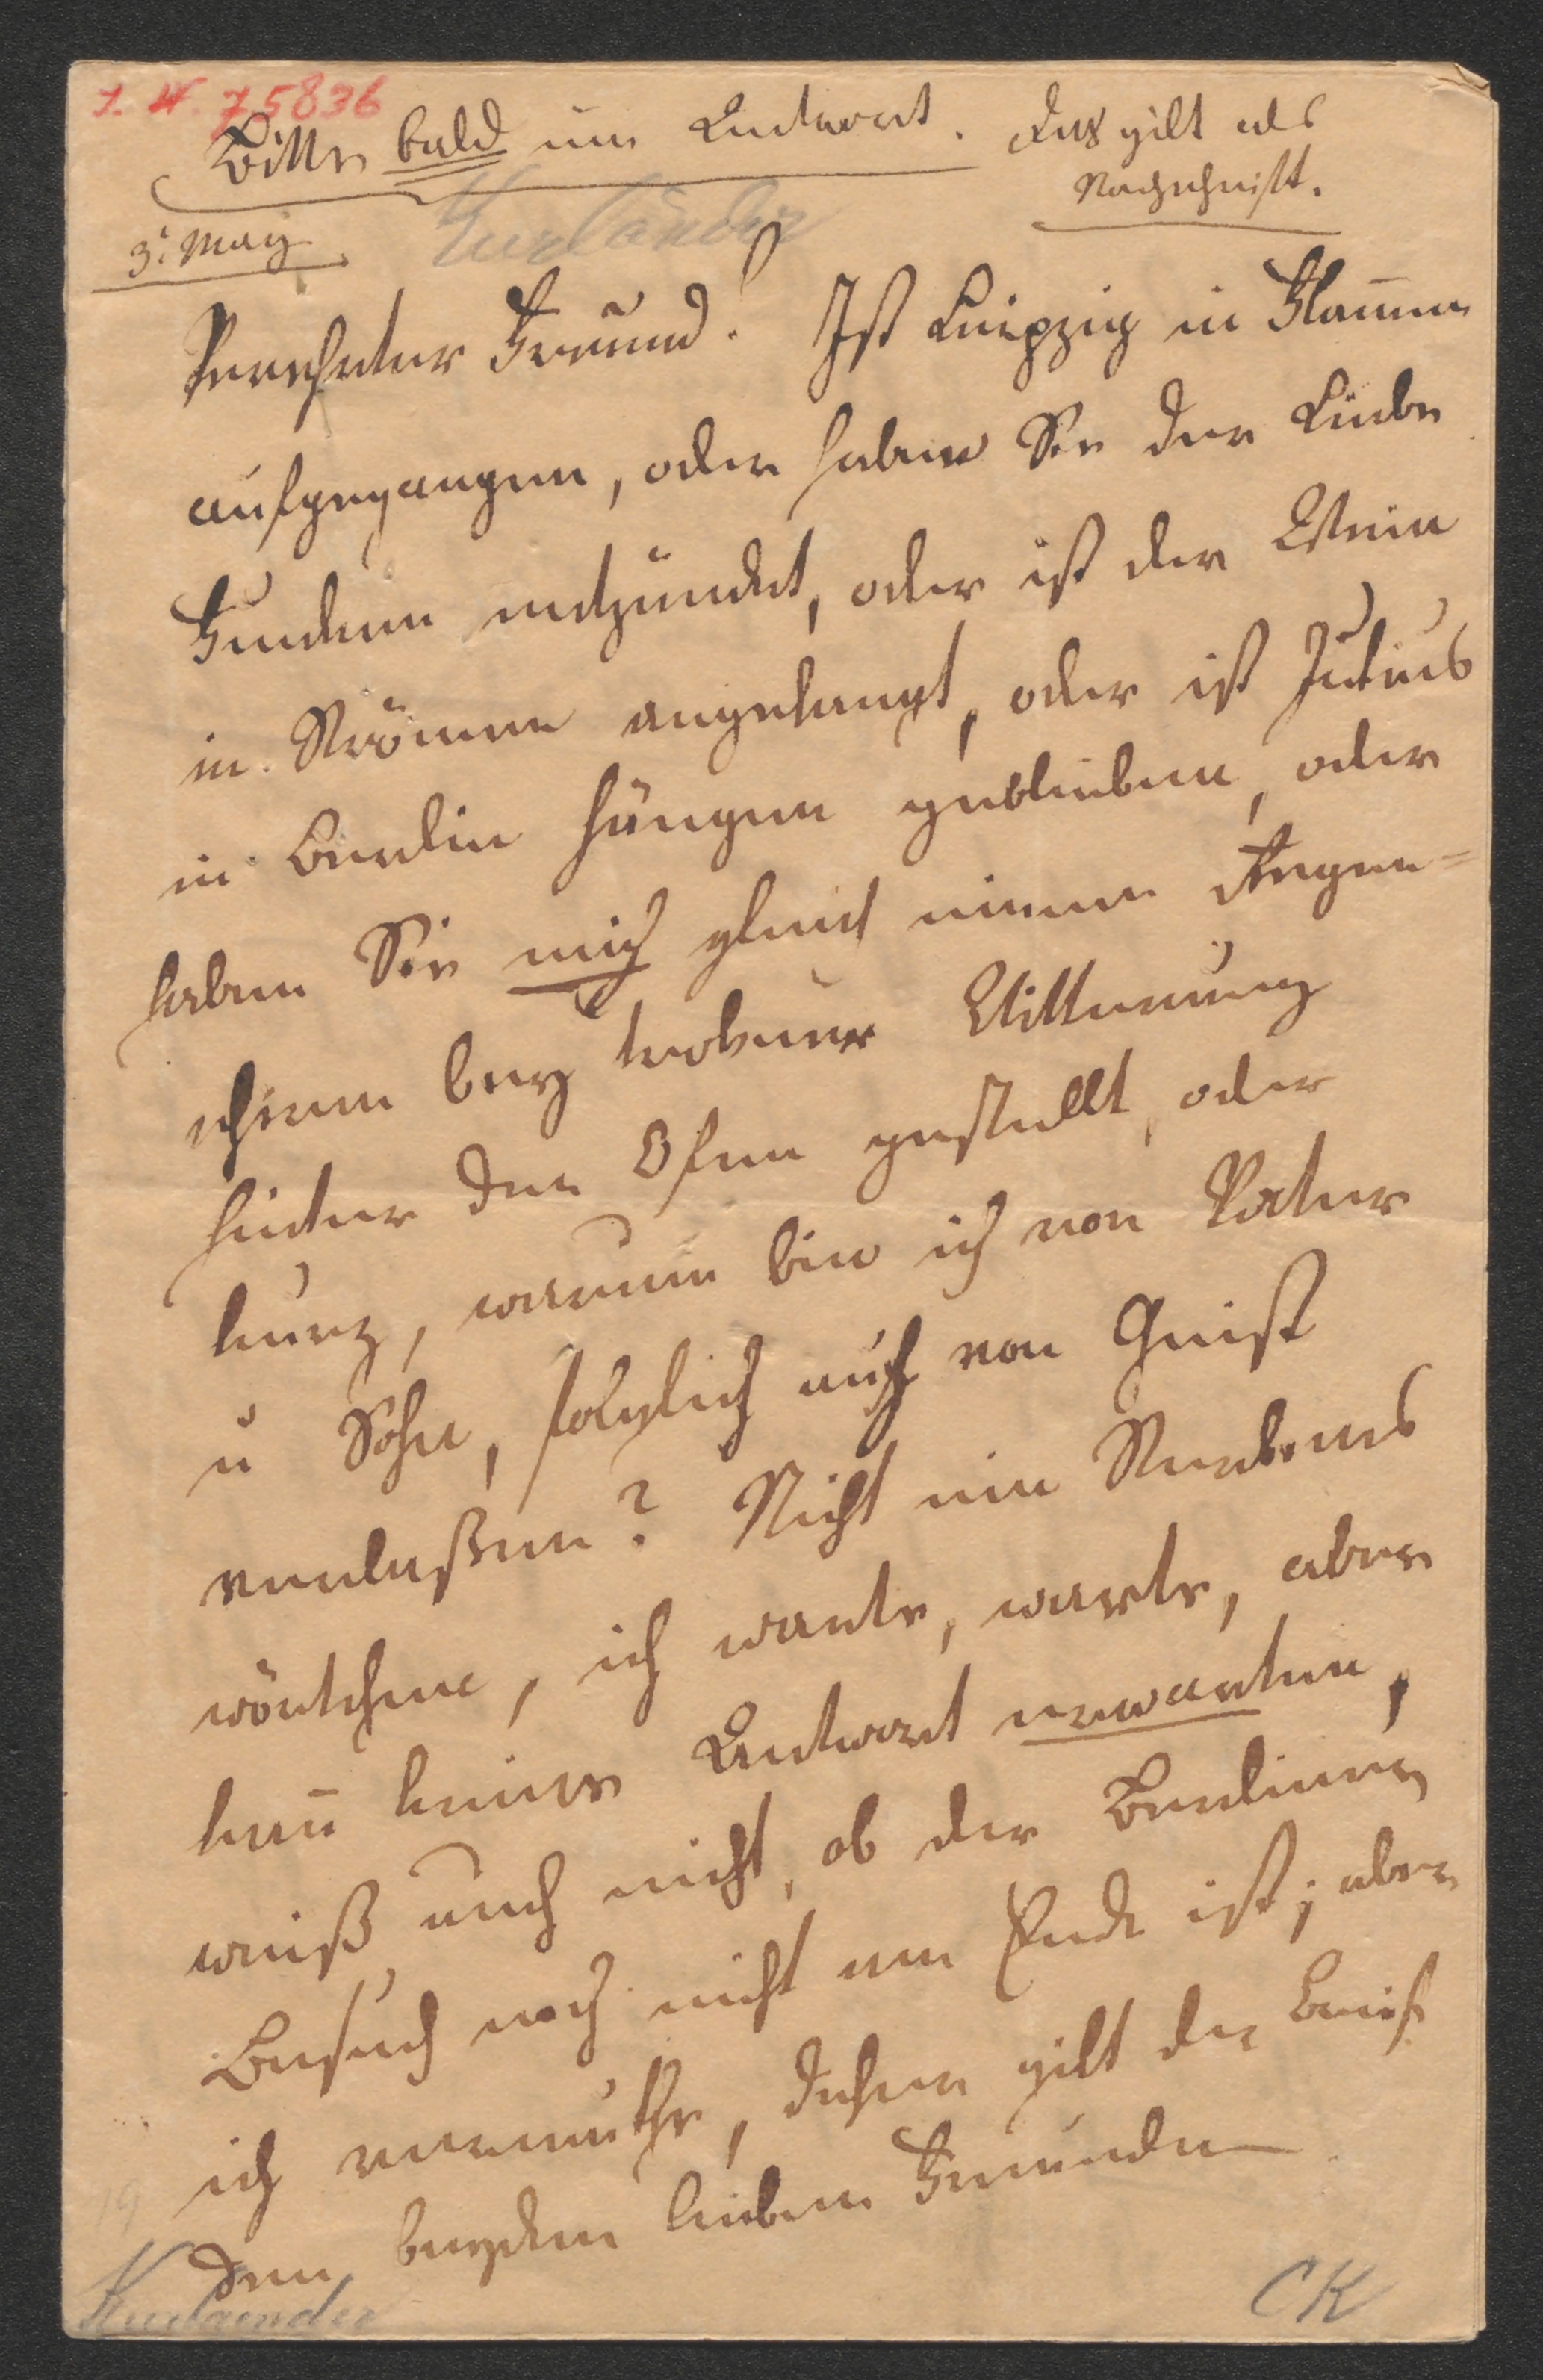 I. N. 75836
Bitte bald um Antwort. Das gilt als
Nachschrift.
3t. May
Kurländer
Verehrter Freund! Ist Leipzig in Flam̄en
aufgegangen, oder haben Sie der Liebe
Funken entzündet, oder ist der Wein
in Strömen angelangt, oder ist Julius
in Berlin hängen geblieben, oder
haben Sie mich gleich einem Regen=
schirm bey trokener Witterung
hinter den Ofen gestellt, oder
kurz, warum bin ich von Vater
u Sohn, folglich auch von Geist
verlaßen? Nicht ein Sterbens
wörtchen, ich warte, warte, aber
kan̄ keine Antwort erwarten,
weiß auch nicht, ob der Berliner
Besuch noch nicht am Ende ist; aber
ich vermuthe, daher gilt der Brief
den beyden lieben Freunden
Kurlaender
CK